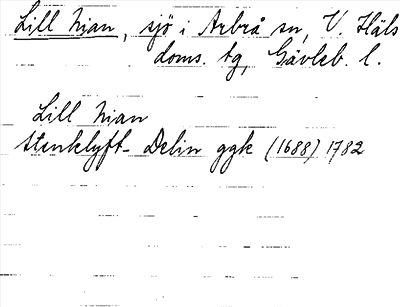 Lill Nian, sjö i Arbrå sn, V. Häls
doms. tg, Gävleb. l.
Lill Nian
Stenklyft- Delin ggk (1688) 1782